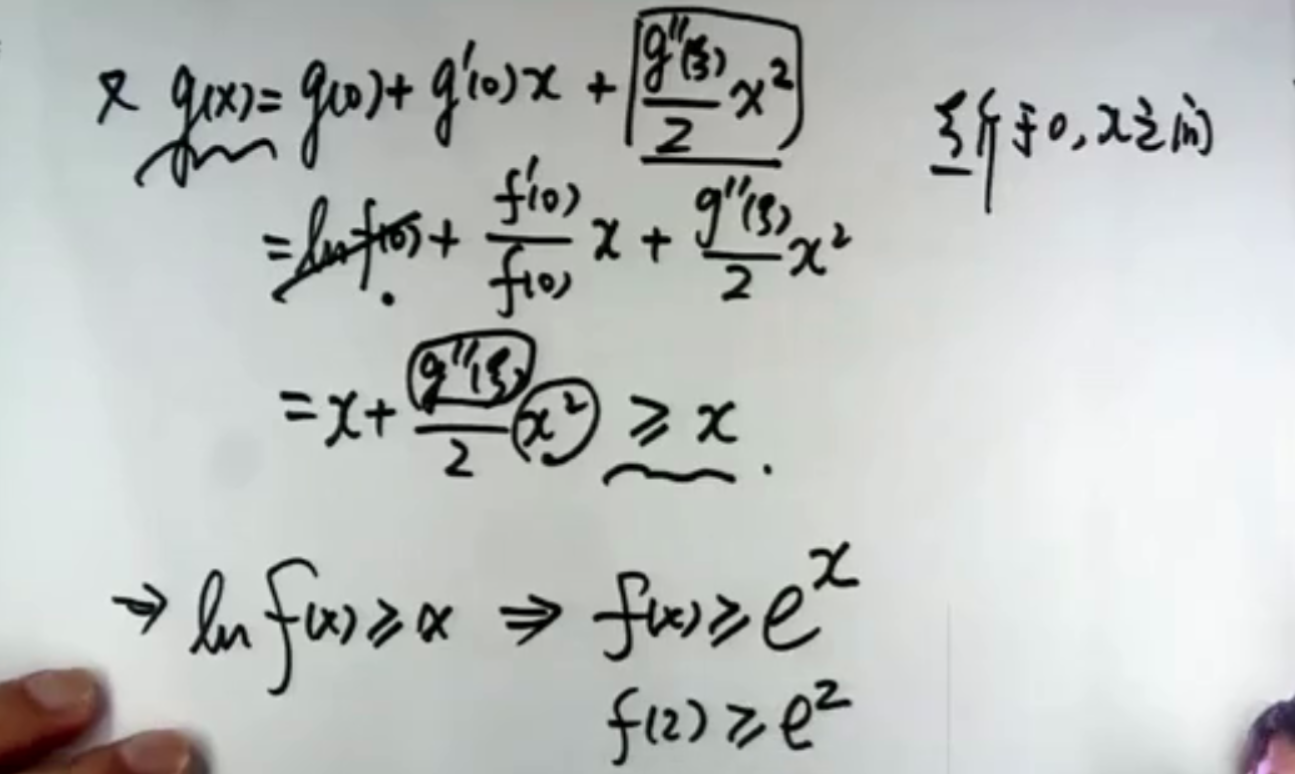 又 g(x) = g(0) + g'(0)x + g''(ξ)/2 x² ξ介于0,x之间
= ln f(0) + f'(0)/f(0) x + g''(ξ)/2 x²
= x + g''(ξ)/2 x² ≥ x .
⇒ ln f(x) ≥ x ⇒ f(x) ≥ e^x
f(2) ≥ e²